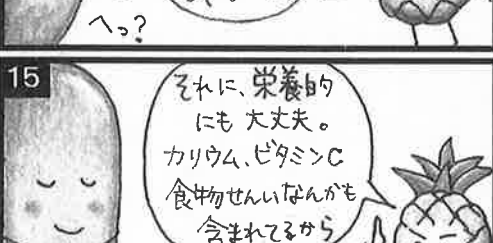 へっ?
15
それに、栄養的
にも大丈夫。
カリウム、ビタミンC
食物せんいなんかも
含まれてるから